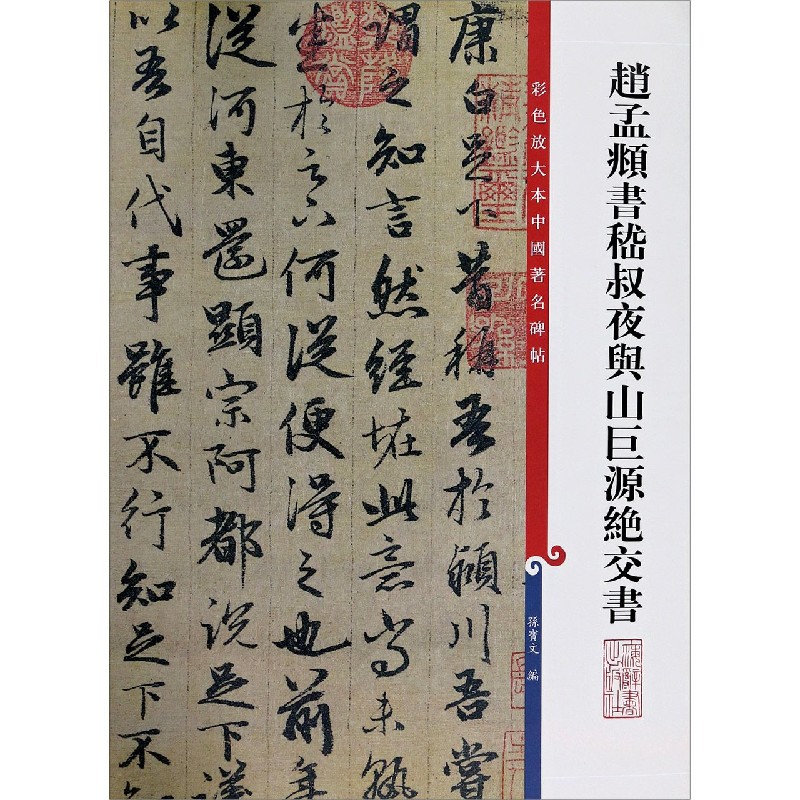 趙孟頫書嵇叔夜與山巨源絶交書
彩色放大本中國著名碑帖
孫寶文 編
康白足下昔稱吾於潁川吾嘗
謂之知言然經怪此意尚未熟
悉於足下何從便得之也前年
從河東還顯宗阿都説足下議
以吾自代事雖不行知足下不